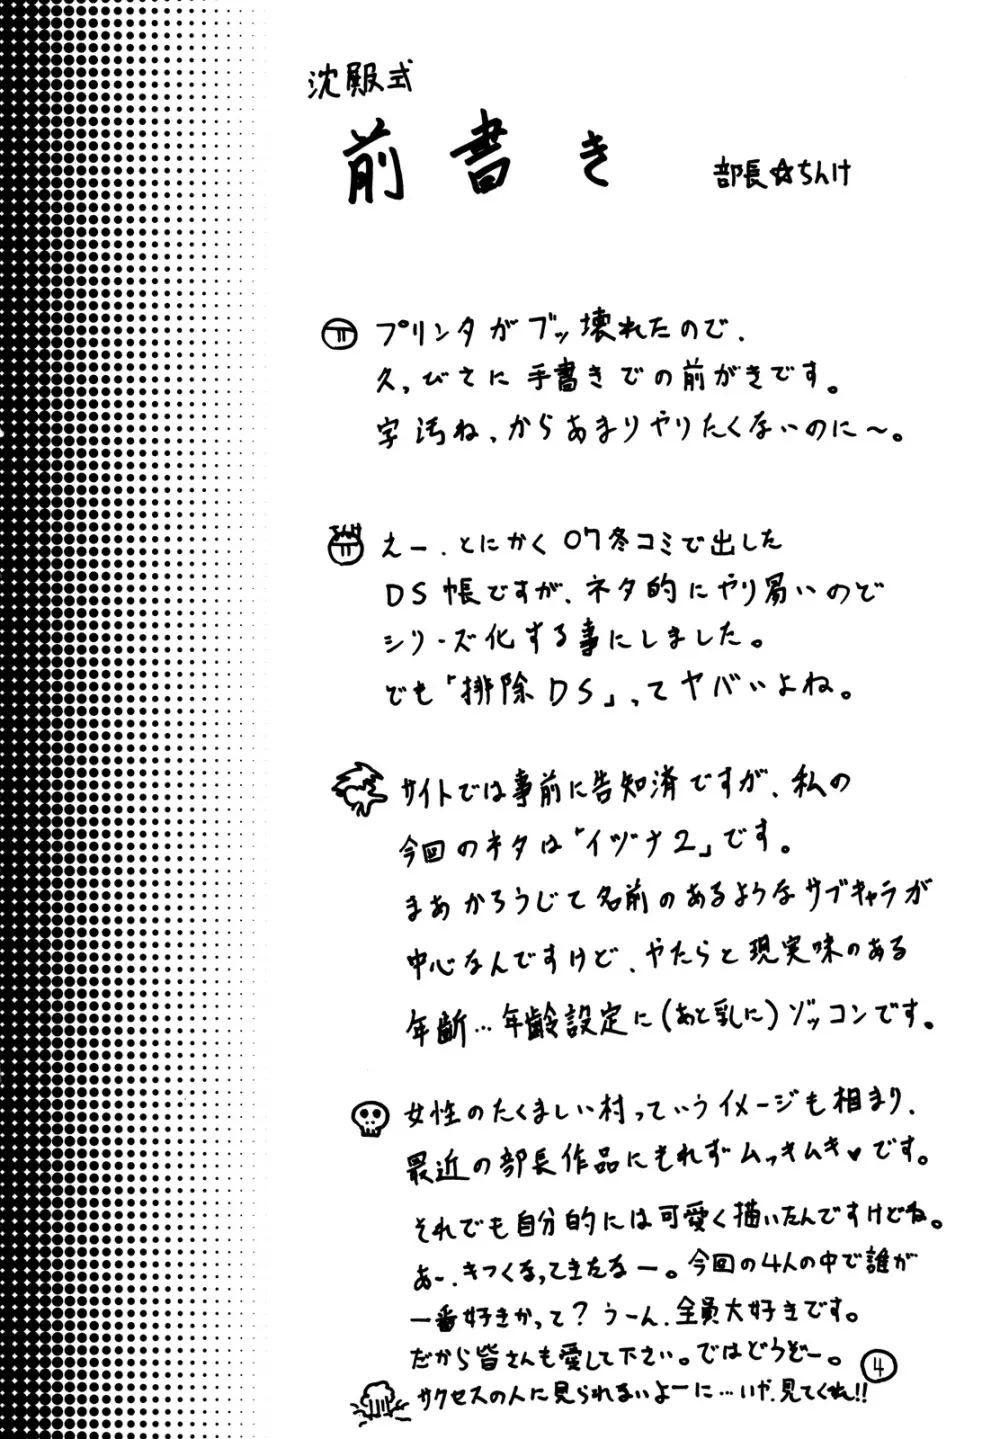 沈殿式
前書き
部長☆ちんけ
プリンタがブッ壊れたので、
久っびさに手書きでの前がきです。
字汚ね、からあまりやりたくないのに〜。
えー、とにかく07冬コミで出した
DS帳ですが、ネタ的にやり易いので
シリーズ化する事にしました。
でも「排除DS」、ってヤバいよね。
サイトでは事前に告知済ですが、私の
今回のネタは「イヅナ2」です。
まあかろうじて名前のあるようなサブキャラが
中心なんですけど、やたらと現実味のある
年齢…年齢設定に(あと乳に)ゾッコンです。
女性のたくましい村っていうイメージも相まり、
最近の部長作品にもれずムっキムキ♥です。
それでも自分的には可愛く描いたんですけどね。
あー、きつくなってきたなー。今回の4人の中で誰が
一番好きかって?うーん、全員大好きです。
だから皆さんも愛して下さい。ではどうぞー。
サクセスの人に見られないよーに…いや、見てくれ!!
4